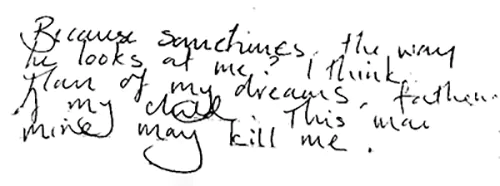 Because sometimes, the way
he looks at me? I think.
Man of my dreams, father
of my child. This man
mine may kill me.